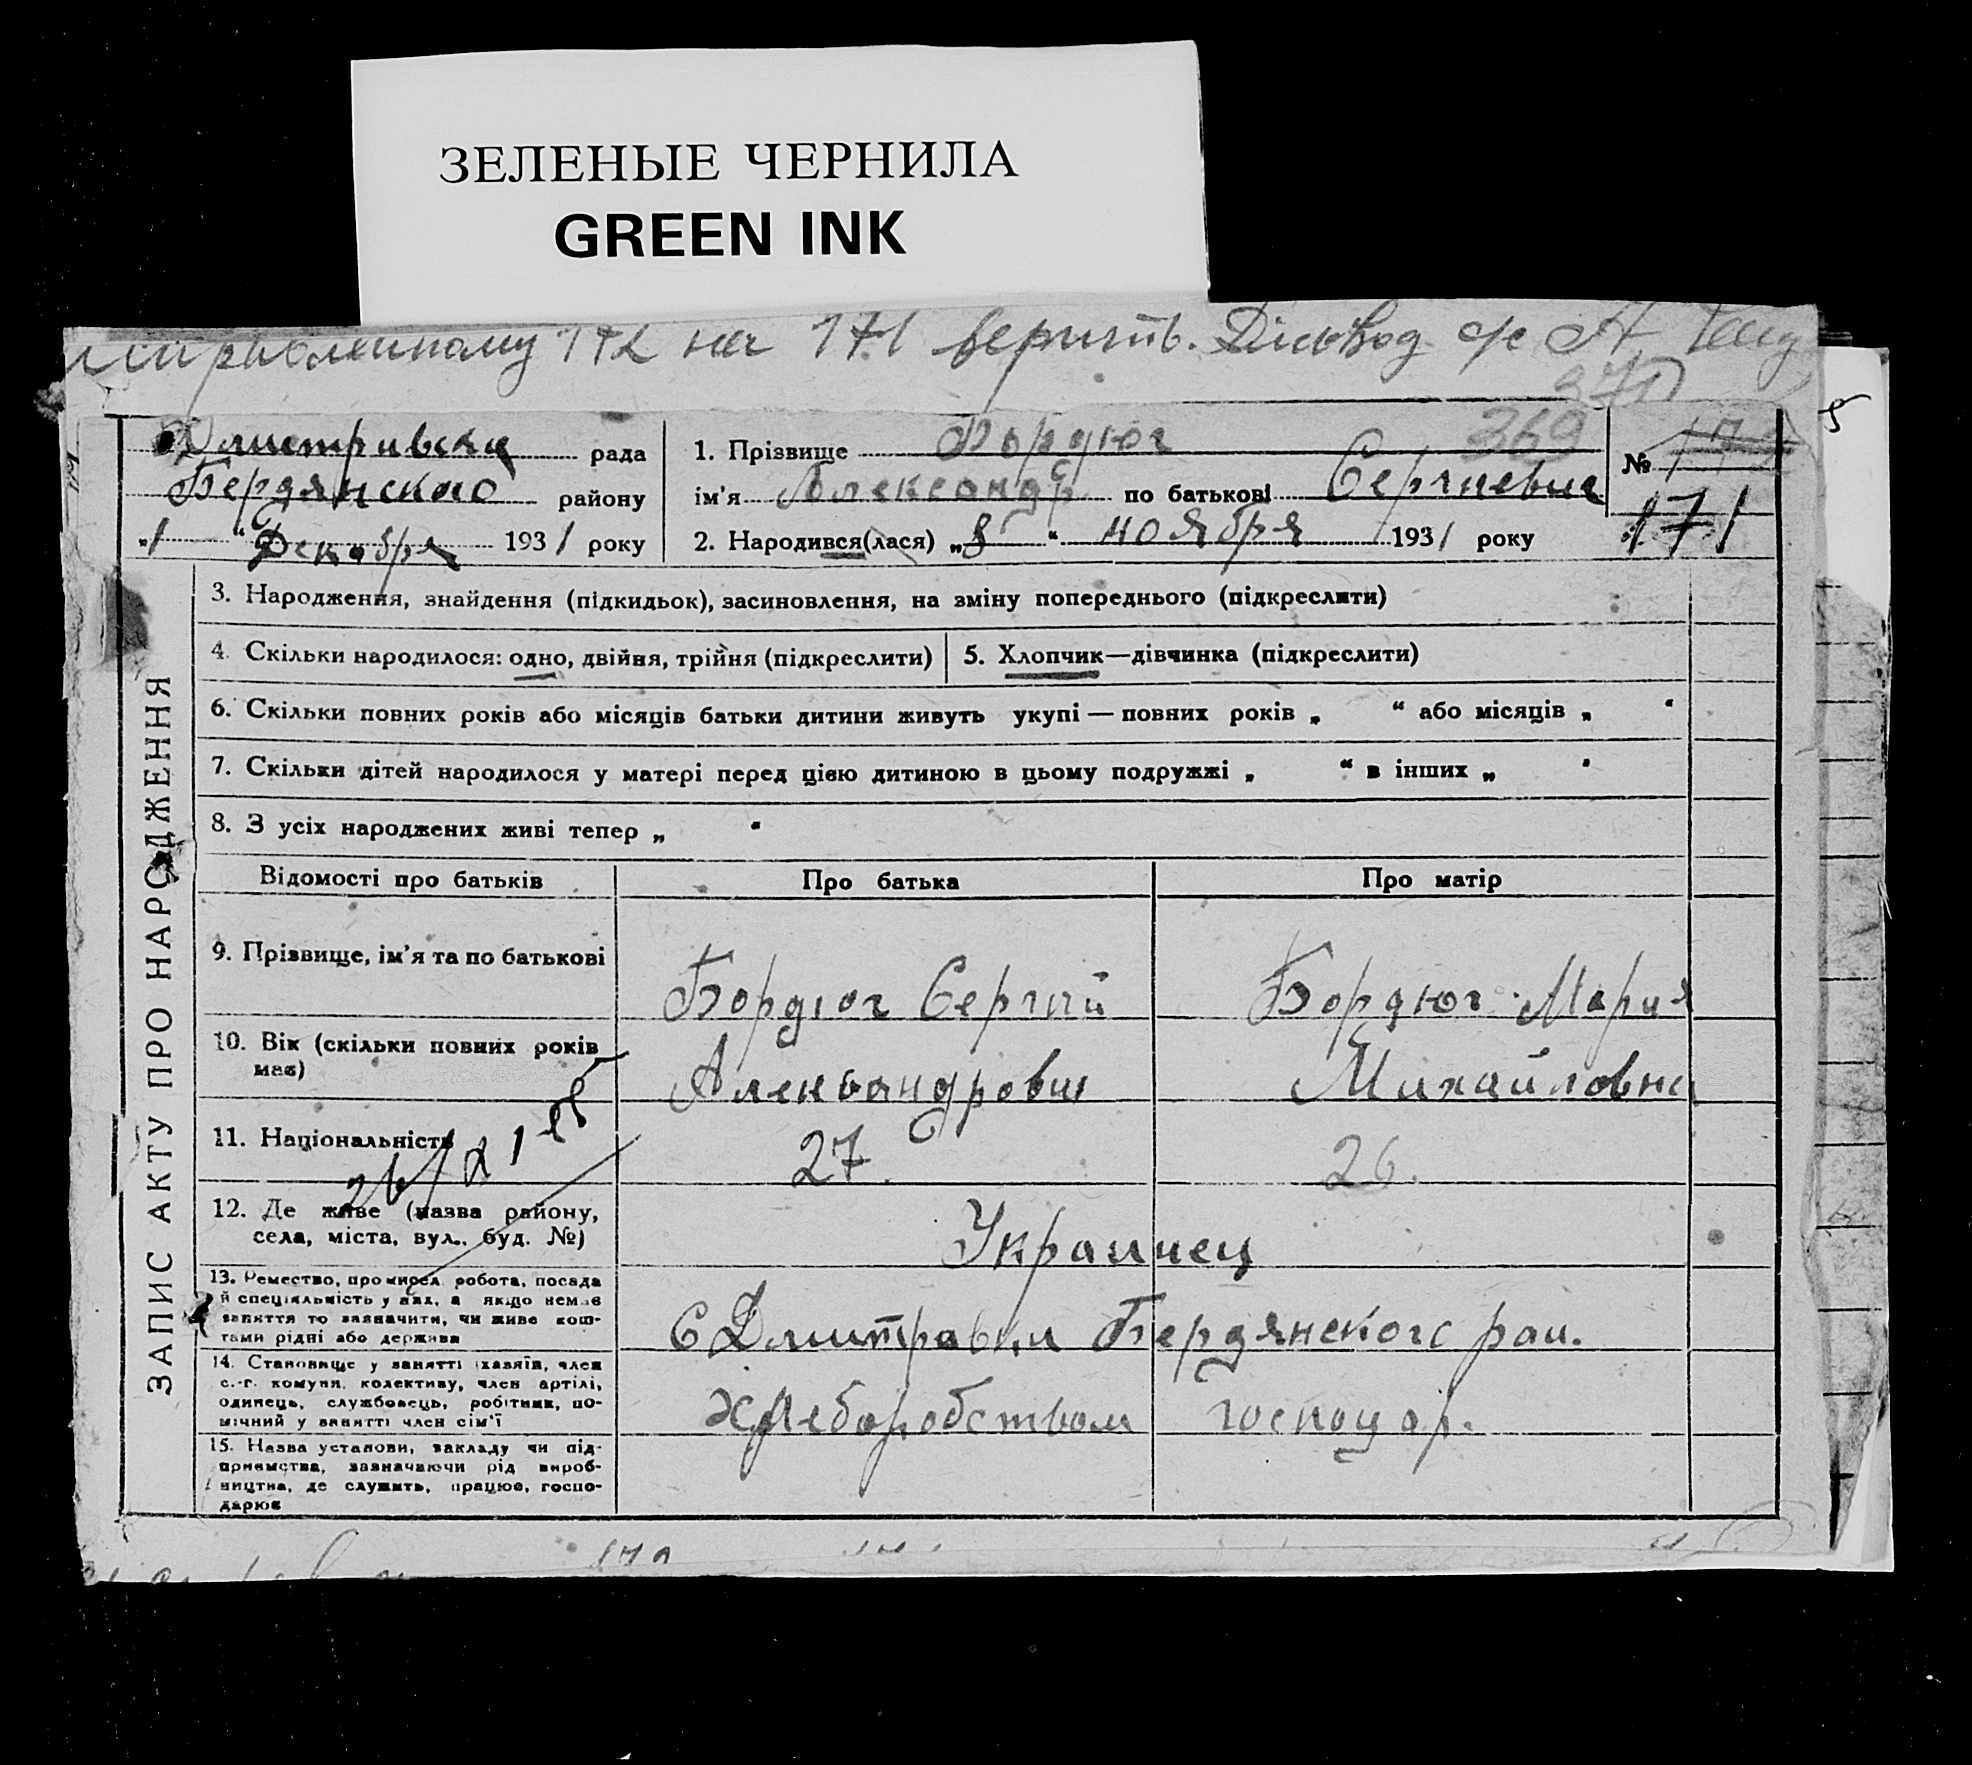 ЗЕЛЕНЫЕ ЧЕРНИЛА
GREEN INK
172 на 171 верить. Діловод с/с А.
370
Дмитривська рада
Бердянского району
„1“ Декабря 1931 року
1. Прізвище Бордюг
369
ім'я Александр по батькові Сергиевич
2. Народився(лася) „8“ ноября 1931 року
№ 172
171
ЗАПИС АКТУ ПРО НАРОДЖЕННЯ
3. Народження, знайдення (підкидьок), засиновлення, на зміну попереднього (підкреслити)
4. Скільки народилося: одно, двійня, трійня (підкреслити)
5. Хлопчик—дівчинка (підкреслити)
6. Скільки повних років або місяців батьки дитини живуть укупі — повних років „ “ або місяців „ “
7. Скільки дітей народилося у матері перед цією дитиною в цьому подружжі „ “ в інших „ “
8. З усіх народжених живі тепер „ “
Відомості про батьків
Про батька
Про матір
9. Прізвище, ім'я та по батькові
Бордюг Сергий
Бордюг Мария
10. Вік (скільки повних років
має)
Александрович
Михайловна
11. Національність
27.
26.
12. Де живе (назва району,
села, міста, вул., буд. №)
Украинец
13. Ремество, промисел, робота, посада
й спеціяльність у них, а якщо немає
заняття то зазначити, чи живе кош-
тами рідні або держави
С Дмитровки Бердянского рай.
14. Становище у занятті (хазяїн, член
с.-г. комуни, колективу, член артілі,
одинець, службовець, робітник, по-
мічний у занятті член сім'ї
Хлеборобством господар.
15. Назва установи, закладу чи під-
приємства, зазначаючи рід вироб-
ництва, де служить, працює, госпо-
дарює